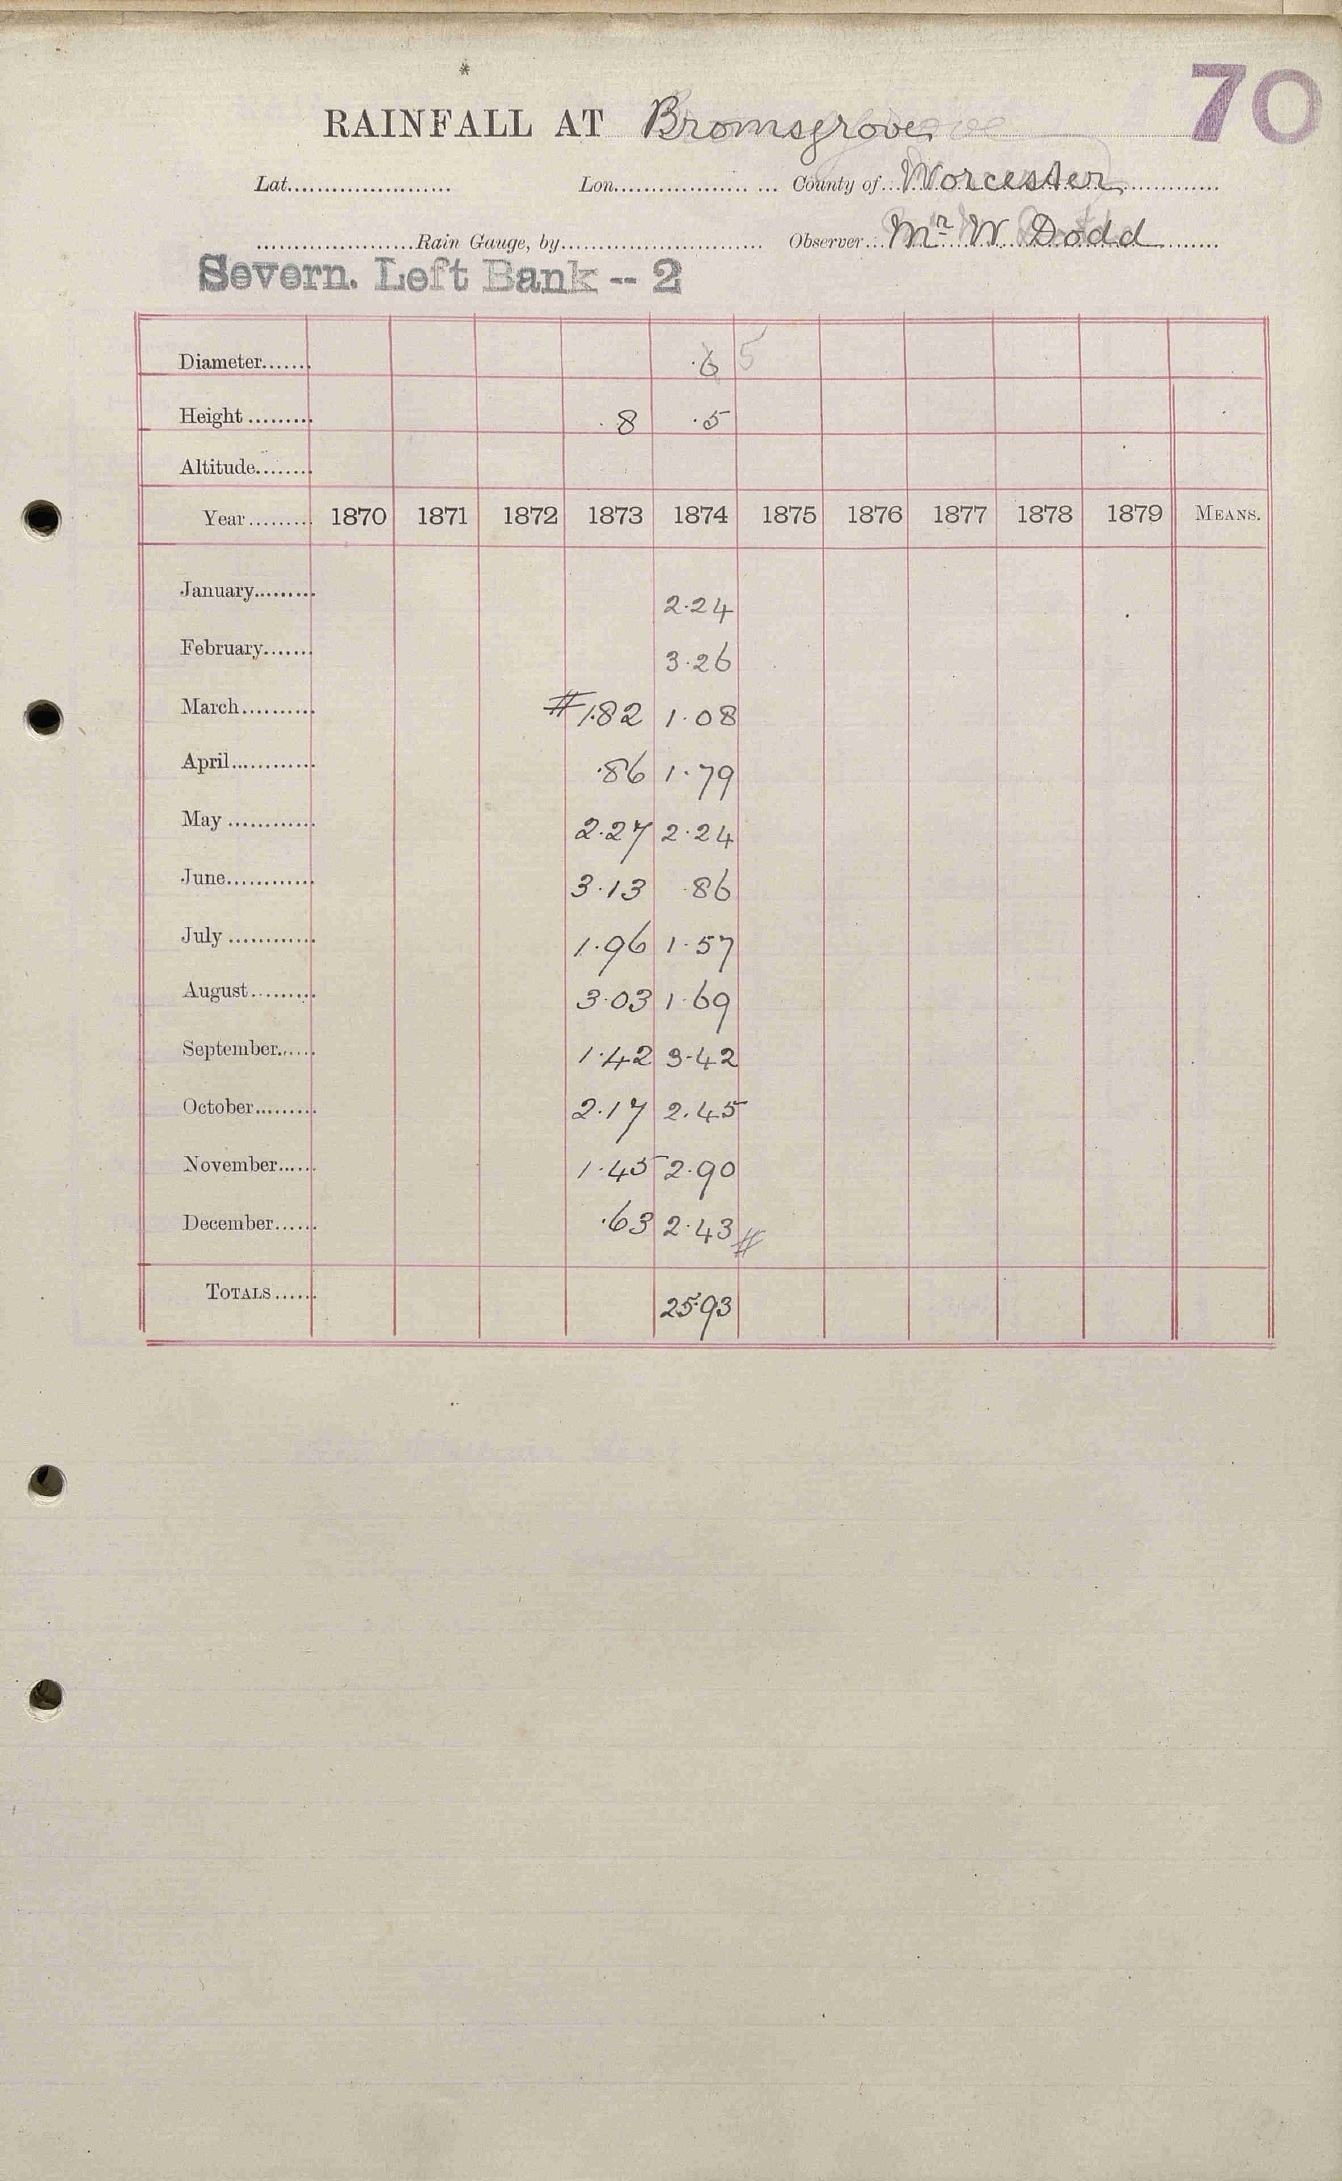 *
70
RAINFALL AT Bromsgrove
Lat. Lon. County of Worcester
Rain Gauge, by Observer Mr W Dodd
Severn. Left Bank -- 2
Diameter 5
Height .8 .5
Altitude
Year 1870 1871 1872 1873 1874 1875 1876 1877 1878 1879 MEANS.
January 2.24
February 3.26
March # 1.82 1.08
April .86 1.79
May 2.27 2.24
June 3.13 .86
July 1.96 1.57
August 3.03 1.69
September 1.42 3.42
October 2.17 2.45
November 1.45 2.90
December .63 2.43 #
TOTALS 25.93